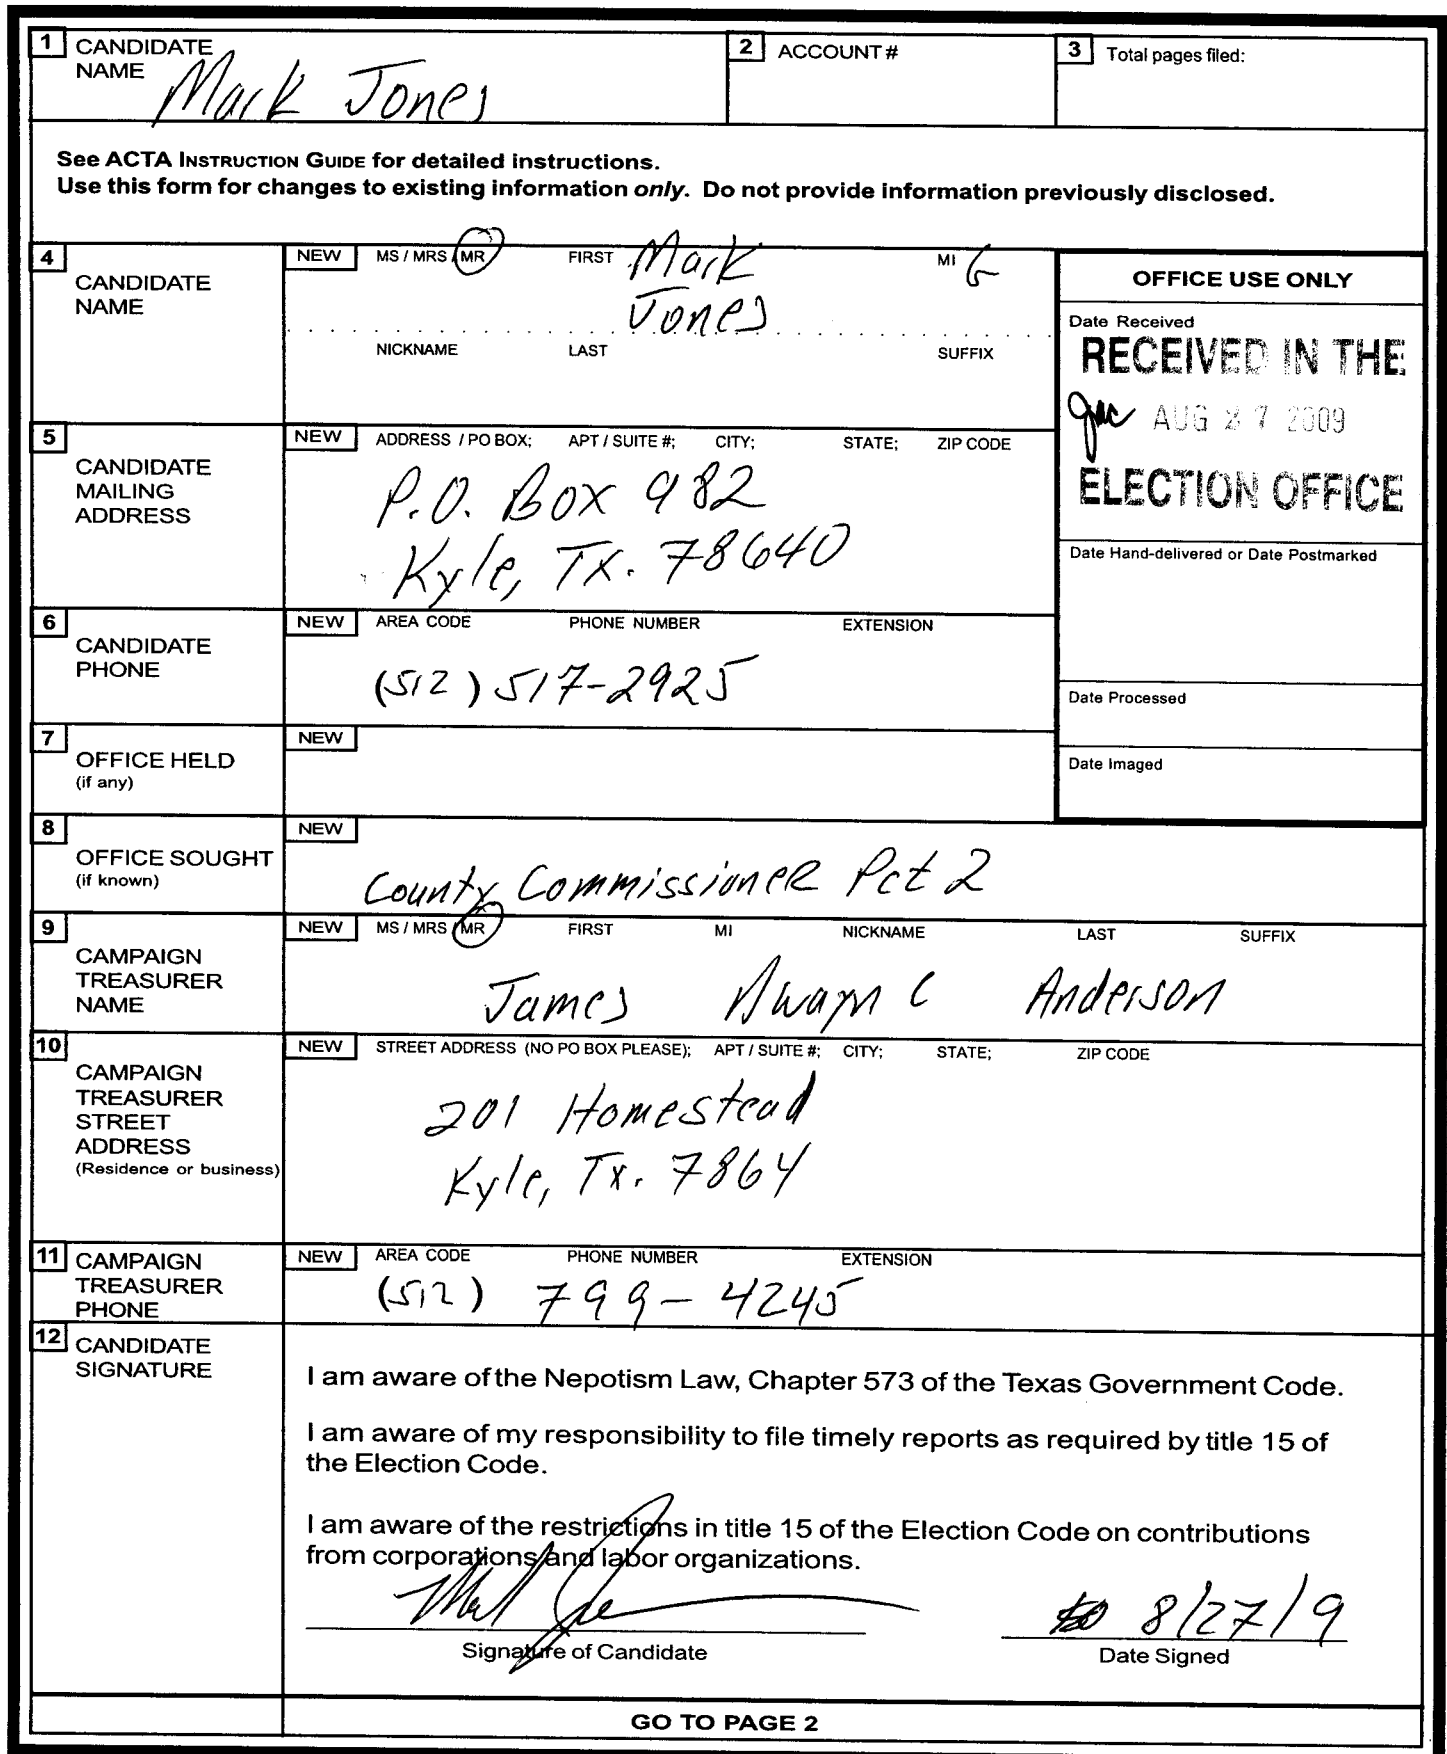 1 CANDIDATE NAME Mark Jones
2 ACCOUNT #
3 Total pages filed:
See ACTA INSTRUCTION GUIDE for detailed instructions.
Use this form for changes to existing information only. Do not provide information previously disclosed.
4 CANDIDATE NAME
NEW MS / MRS / MR FIRST Mark MI G
Jones
NICKNAME LAST SUFFIX
OFFICE USE ONLY
Date Received
RECEIVED IN THE
AUG 27 2009
ELECTION OFFICE
Date Hand-delivered or Date Postmarked
Date Processed
Date Imaged
5 CANDIDATE MAILING ADDRESS
NEW ADDRESS / PO BOX; APT / SUITE #; CITY; STATE; ZIP CODE
P.O. Box 982
Kyle, Tx. 78640
6 CANDIDATE PHONE
NEW AREA CODE PHONE NUMBER EXTENSION
(512) 517-2925
7 OFFICE HELD (if any)
NEW
8 OFFICE SOUGHT (if known)
NEW
County Commissioner Pct 2
9 CAMPAIGN TREASURER NAME
NEW MS / MRS / MR FIRST MI NICKNAME LAST SUFFIX
James C Anderson
10 CAMPAIGN TREASURER STREET ADDRESS (Residence or business)
NEW STREET ADDRESS (NO PO BOX PLEASE); APT / SUITE #; CITY; STATE; ZIP CODE
201 Homestead
Kyle, Tx. 7864
11 CAMPAIGN TREASURER PHONE
NEW AREA CODE PHONE NUMBER EXTENSION
(512) 799-4245
12 CANDIDATE SIGNATURE
I am aware of the Nepotism Law, Chapter 573 of the Texas Government Code.
I am aware of my responsibility to file timely reports as required by title 15 of
the Election Code.
I am aware of the restrictions in title 15 of the Election Code on contributions
from corporations and labor organizations.
8/27/9
Signature of Candidate
Date Signed
GO TO PAGE 2